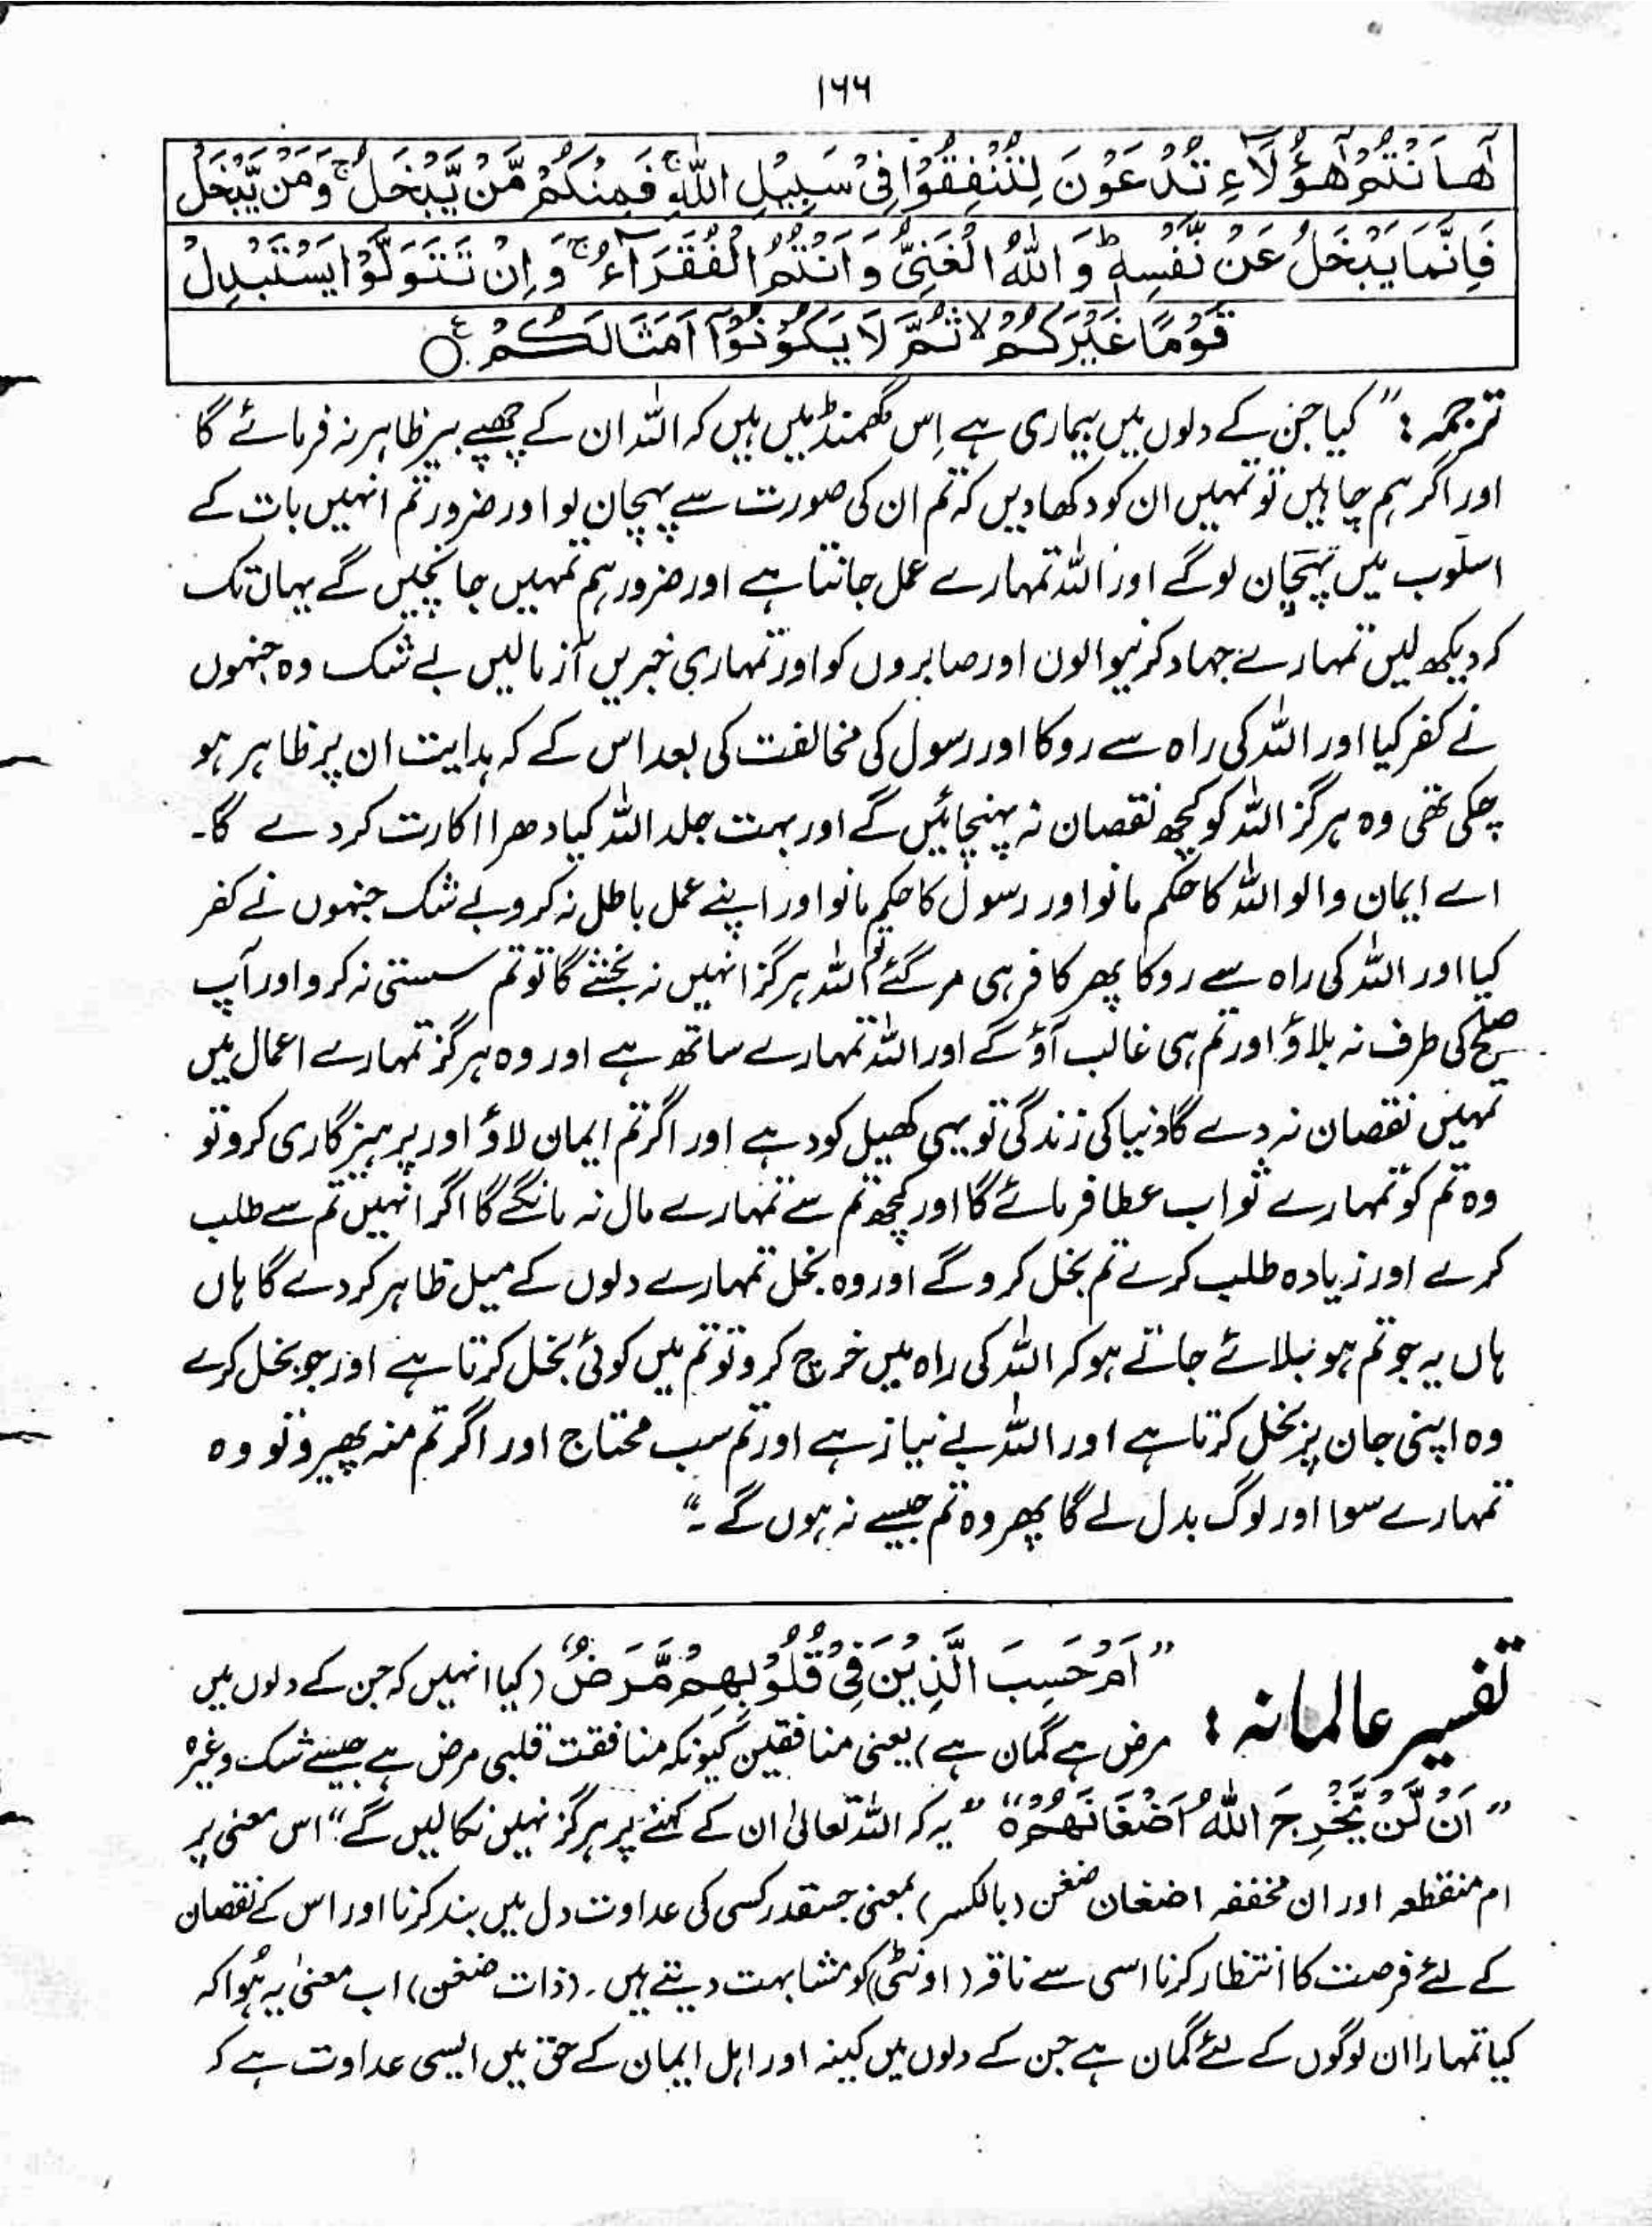 ۱۶۶
هَٓاَنْتُمْ هٰٓؤُلَآءِ تُدْعَوْنَ لِتُنْفِقُوْا فِیْ سَبِیْلِ اللّٰهِ ۚ فَمِنْكُمْ مَّنْ یَّبْخَلُ ۚ وَمَنْ یَّبْخَلْ
فَاِنَّمَا یَبْخَلُ عَنْ نَّفْسِهٖ ؕ وَ اللّٰهُ الْغَنِیُّ وَ اَنْتُمُ الْفُقَرَآءُ ۚ وَ اِنْ تَتَوَلَّوْا یَسْتَبْدِلْ
قَوْمًا غَیْرَكُمْ ۙ ثُمَّ لَا یَكُوْنُوْۤا اَمْثَالَكُمْ ۠
ترجمہ : ” کیا جن کے دلوں میں بیماری ہے اِس گھمنڈ میں ہیں کہ اللہ ان کے چھپے بیر ظاہر نہ فرمائے گا
اور اگر ہم چاہیں تو تمہیں ان کو دکھا دیں کہ تم ان کی صورت سے پہچان لو اور ضرور تم انہیں بات کے
اسلوب میں پہچان لو گے اور اللہ تمہارے عمل جانتا ہے اور ضرور ہم تمہیں جانچیں گے یہاں تک
کہ دیکھ لیں تمہارے جہاد کرنیوالوں اور صابروں کو اور تمہاری خبریں آزما لیں بے شک وہ جنہوں
نے کفر کیا اور اللہ کی راہ سے روکا اور رسول کی مخالفت کی بعد اس کے کہ ہدایت ان پر ظاہر ہو
چکی تھی وہ ہرگز اللہ کو کچھ نقصان نہ پہنچائیں گے اور بہت جلد اللہ کیا دھرا اکارت کر دے گا۔
اے ایمان والو اللہ کا حکم مانو اور رسول کا حکم مانو اور اپنے عمل باطل نہ کرو بے شک جنہوں نے کفر
کیا اور اللہ کی راہ سے روکا پھر کافر ہی مر گئے تو اللہ ہرگز انہیں نہ بخشے گا تو تم سستی نہ کرو اور آپ
صلح کی طرف نہ بلاؤ اور تم ہی غالب آؤ گے اور اللہ تمہارے ساتھ ہے اور وہ ہرگز تمہارے اعمال میں
تمہیں نقصان نہ دے گا دنیا کی زندگی تو یہی کھیل کود ہے اور اگر تم ایمان لاؤ اور پرہیزگاری کرو تو
وہ تم کو تمہارے ثواب عطا فرمائے گا اور کچھ تم سے تمہارے مال نہ مانگے گا اگر انہیں تم سے طلب
کرے اور زیادہ طلب کرے تم بخل کرو گے اور وہ بخل تمہارے دلوں کے میل ظاہر کر دے گا ہاں
ہاں یہ جو تم ہو بلائے جاتے ہو کہ اللہ کی راہ میں خرچ کرو تو تم میں کوئی بخل کرتا ہے اور جو بخل کرے
وہ اپنی جان پر بخل کرتا ہے اور اللہ بے نیاز ہے اور تم سب محتاج اور اگر تم منہ پھیرو تو وہ
تمہارے سوا اور لوگ بدل لے گا پھر وہ تم جیسے نہ ہوں گے ۔“
تفسیر عالمانہ : ” اَمْ حَسِبَ الَّذِیْنَ فِیْ قُلُوْبِهِمْ مَّرَضٌ “ (کیا انہیں کہ جن کے دلوں میں
مرض ہے گمان ہے) یعنی منافقین کیونکہ منافقت قلبی مرض ہے جیسے شک وغیرہ
” اَنْ لَّنْ یُّخْرِجَ اللّٰهُ اَضْغَانَهُمْ ۃ “ ” یہ کہ اللہ تعالیٰ ان کے کینے پر ہرگز نہیں نکالیں گے “ اس معنی پر
ام منقطعہ اور ان مخففہ اضغان ضغن (بالکسر) بمعنی جسقدر کسی کی عداوت دل میں بند کرنا اور اس کے نقصان
کے لئے فرصت کا انتظار کرنا اسی سے ناقہ (اونٹی) کو مشابہت دیتے ہیں ۔ (ذات ضغن) اب معنیٰ یہ ہُوا کہ
کیا تمہارا ان لوگوں کے لئے گمان ہے جن کے دلوں میں کینہ اور اہل ایمان کے حق میں ایسی عداوت ہے کہ